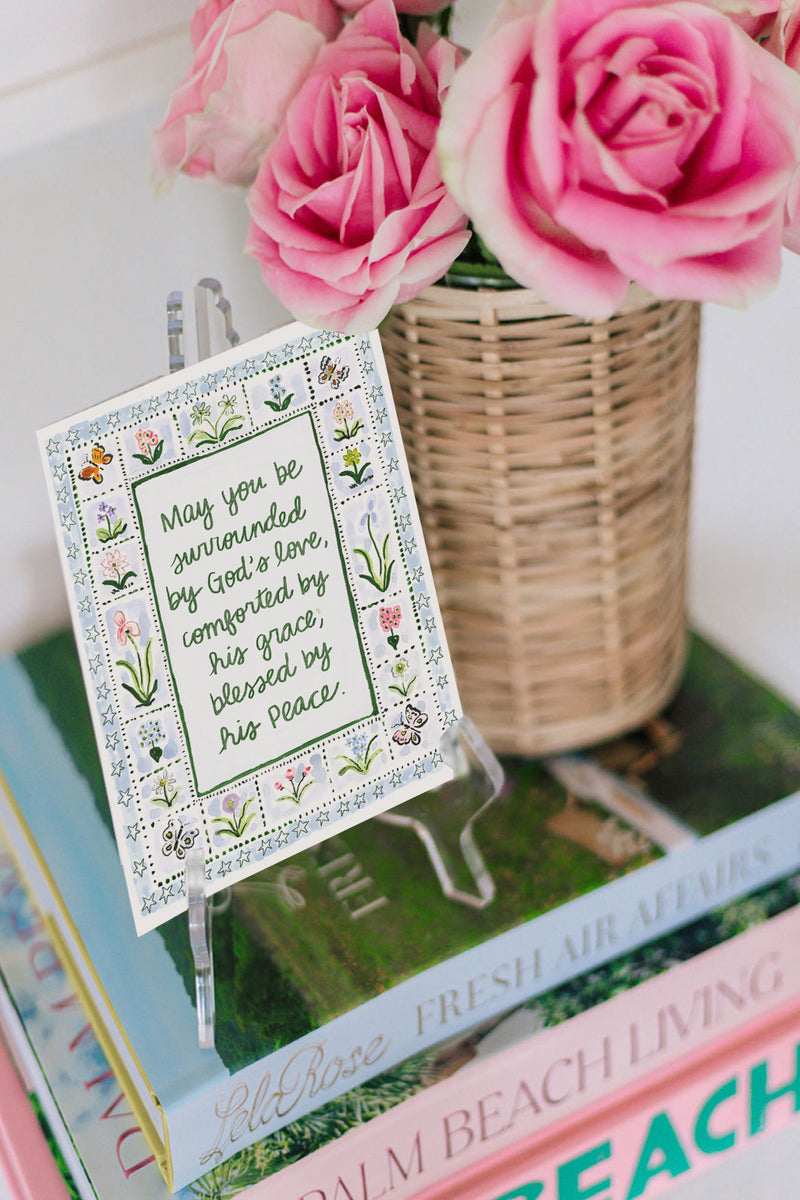 May you be
surrounded
by God's love,
comforted by
his grace,
blessed by
his Peace.
FRE
LelaRose FRESH AIR AFFAIRS
PALM BEACH LIVING
BEACH
PALM BEA